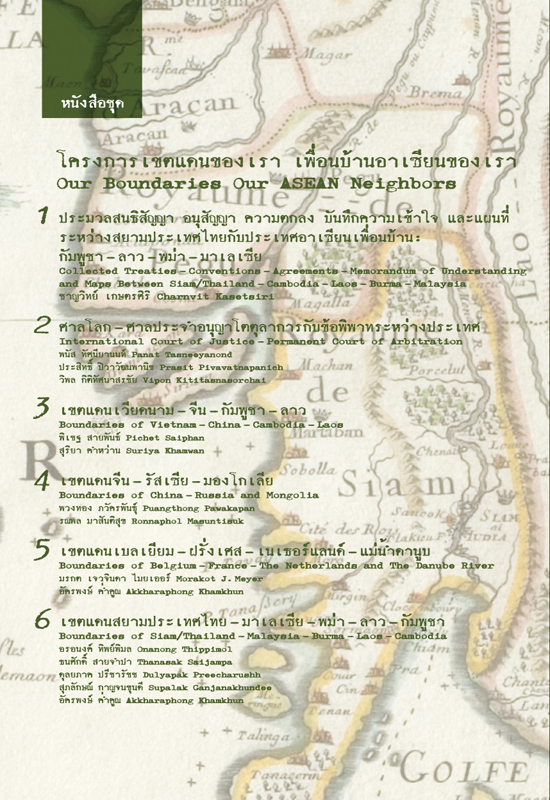 หนังสือชุด
โครงการเขตแดนของเรา เพื่อนบ้านอาเซียนของเรา
Our Boundaries Our ASEAN Neighbors
1 ประมวลสนธิสัญญา อนุสัญญา ความตกลง บันทึกความเข้าใจ และแผนที่
ระหว่างสยามประเทศไทยกับประเทศอาเซียนเพื่อนบ้าน:
กัมพูชา – ลาว – พม่า – มาเลเซีย
Collected Treaties – Conventions – Agreements – Memorandum of Understanding
and Maps Between Siam/Thailand – Cambodia – Laos – Burma – Malaysia
ชาญวิทย์ เกษตรศิริ Charnvit Kasetsiri
2 ศาลโลก – ศาลประจำอนุญาโตตุลาการกับข้อพิพาทระหว่างประเทศ
International Court of Justice – Permanent Court of Arbitration
พนัส ทัศนียานนท์ Panat Tasneeyanond
ประสิทธิ์ ปิวาวัฒนพานิช Prasit Pivavatnapanich
วิพล กิติทัศนาสรชัย Vipon Kititasnasorchai
3 เขตแดนเวียดนาม – จีน – กัมพูชา – ลาว
Boundaries of Vietnam – China – Cambodia – Laos
พิเชฐ สายพันธ์ Pichet Saiphan
สุริยา คำหว่าน Suriya Khamwan
4 เขตแดนจีน – รัสเซีย – มองโกเลีย
Boundaries of China – Russia and Mongolia
พวงทอง ภวัครพันธุ์ Puangthong Pawakapan
รณพล มาสันติสุข Ronnaphol Masuntisuk
5 เขตแดนเบลเยียม – ฝรั่งเศส – เนเธอร์แลนด์ – แม่น้ำดานูบ
Boundaries of Belgium – France – The Netherlands and The Danube River
มรกต เจวจินดา ไมยเออร์ Morakot J. Meyer
อัครพงษ์ ค่ำคูณ Akkharaphong Khamkhun
6 เขตแดนสยามประเทศไทย – มาเลเซีย – พม่า – ลาว – กัมพูชา
Boundaries of Siam/Thailand – Malaysia – Burma – Laos – Cambodia
อรอนงค์ ทิพย์พิมล Onanong Thippimol
ธนศักดิ์ สายจำปา Thanasak Saijampa
ดุลยภาค ปรีชารัชช Dulyapak Preecharushh
สุภลักษณ์ กาญจนขุนดี Supalak Ganjanakhundee
อัครพงษ์ ค่ำคูณ Akkharaphong Khamkhun
Aracan
Aracan
Magar
Brema
Royaume
de
Magalla
Machan
Porcelut
Martaban
Sobolla
Siam
Cité des Rois
Talinga
Tenan
Pra
Cham
GOLFE